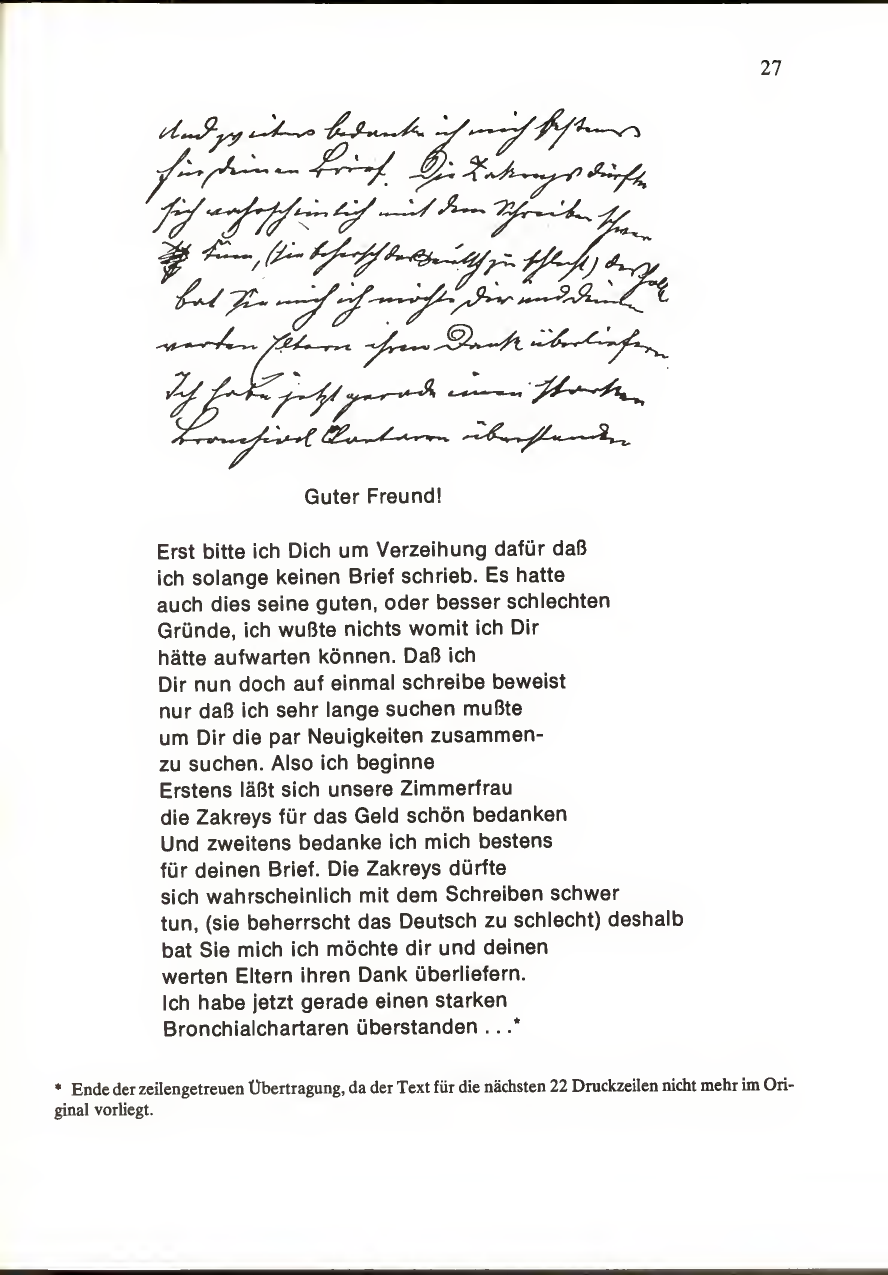 27
Und zweitens bedanke ich mich bestens
für deinen Brief. Die Zakreys dürfte
sich wahrscheinlich mit dem Schreiben schwer
tuen, (sie behersch das Deutsch zu schlecht) deshalb
bat Sie mich ich möchte dir und deinen
werten Eltern ihren Dank überliefern
Ich habe jetzt gerade einen starken
Bronchial überstanden
Guter Freund!
Erst bitte ich Dich um Verzeihung dafür daß
ich solange keinen Brief schrieb. Es hatte
auch dies seine guten, oder besser schlechten
Gründe, ich wußte nichts womit ich Dir
hätte aufwarten können. Daß ich
Dir nun doch auf einmal schreibe beweist
nur daß ich sehr lange suchen mußte
um Dir die par Neuigkeiten zusammen-
zu suchen. Also ich beginne
Erstens läßt sich unsere Zimmerfrau
die Zakreys für das Geld schön bedanken
Und zweitens bedanke ich mich bestens
für deinen Brief. Die Zakreys dürfte
sich wahrscheinlich mit dem Schreiben schwer
tun, (sie beherrscht das Deutsch zu schlecht) deshalb
bat Sie mich ich möchte dir und deinen
werten Eltern ihren Dank überliefern.
Ich habe jetzt gerade einen starken
Bronchialchartaren überstanden . . .*
* Ende der zeilengetreuen Übertragung, da der Text für die nächsten 22 Druckzeilen nicht mehr im Ori-
ginal vorliegt.